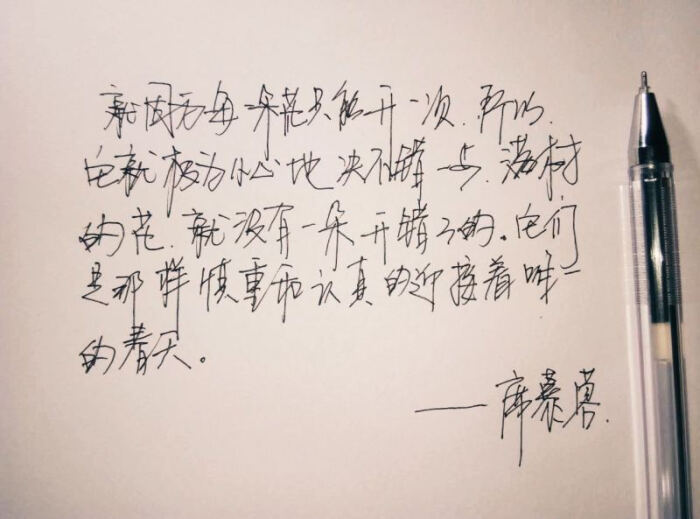 就因为每一朵花只能开一次,所以,
它就极为小心地决不错一步,满树
的花,就没有一朵开错了的。它们
是那样慎重和认真的迎接着唯一
的春天。
——席慕蓉.